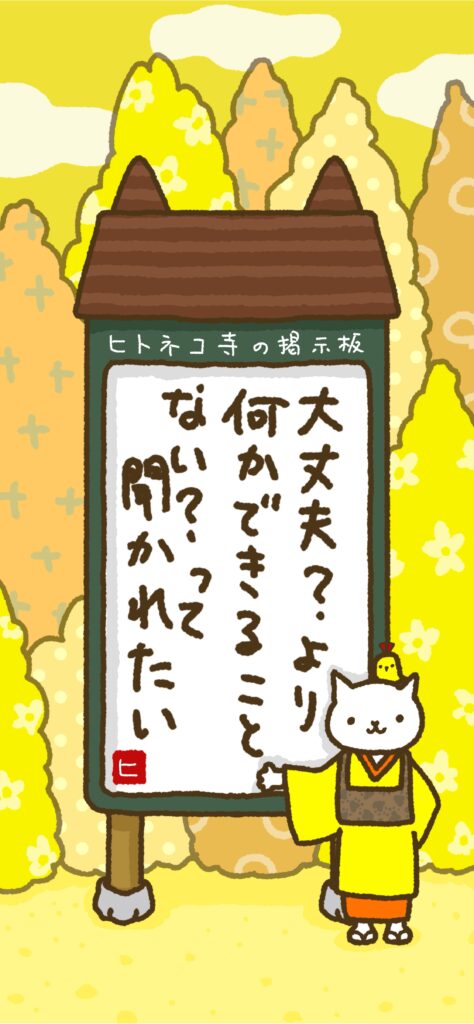 ヒトネコ寺の掲示板
大丈夫？より
何かできること
ない？って
聞かれたい
ヒ